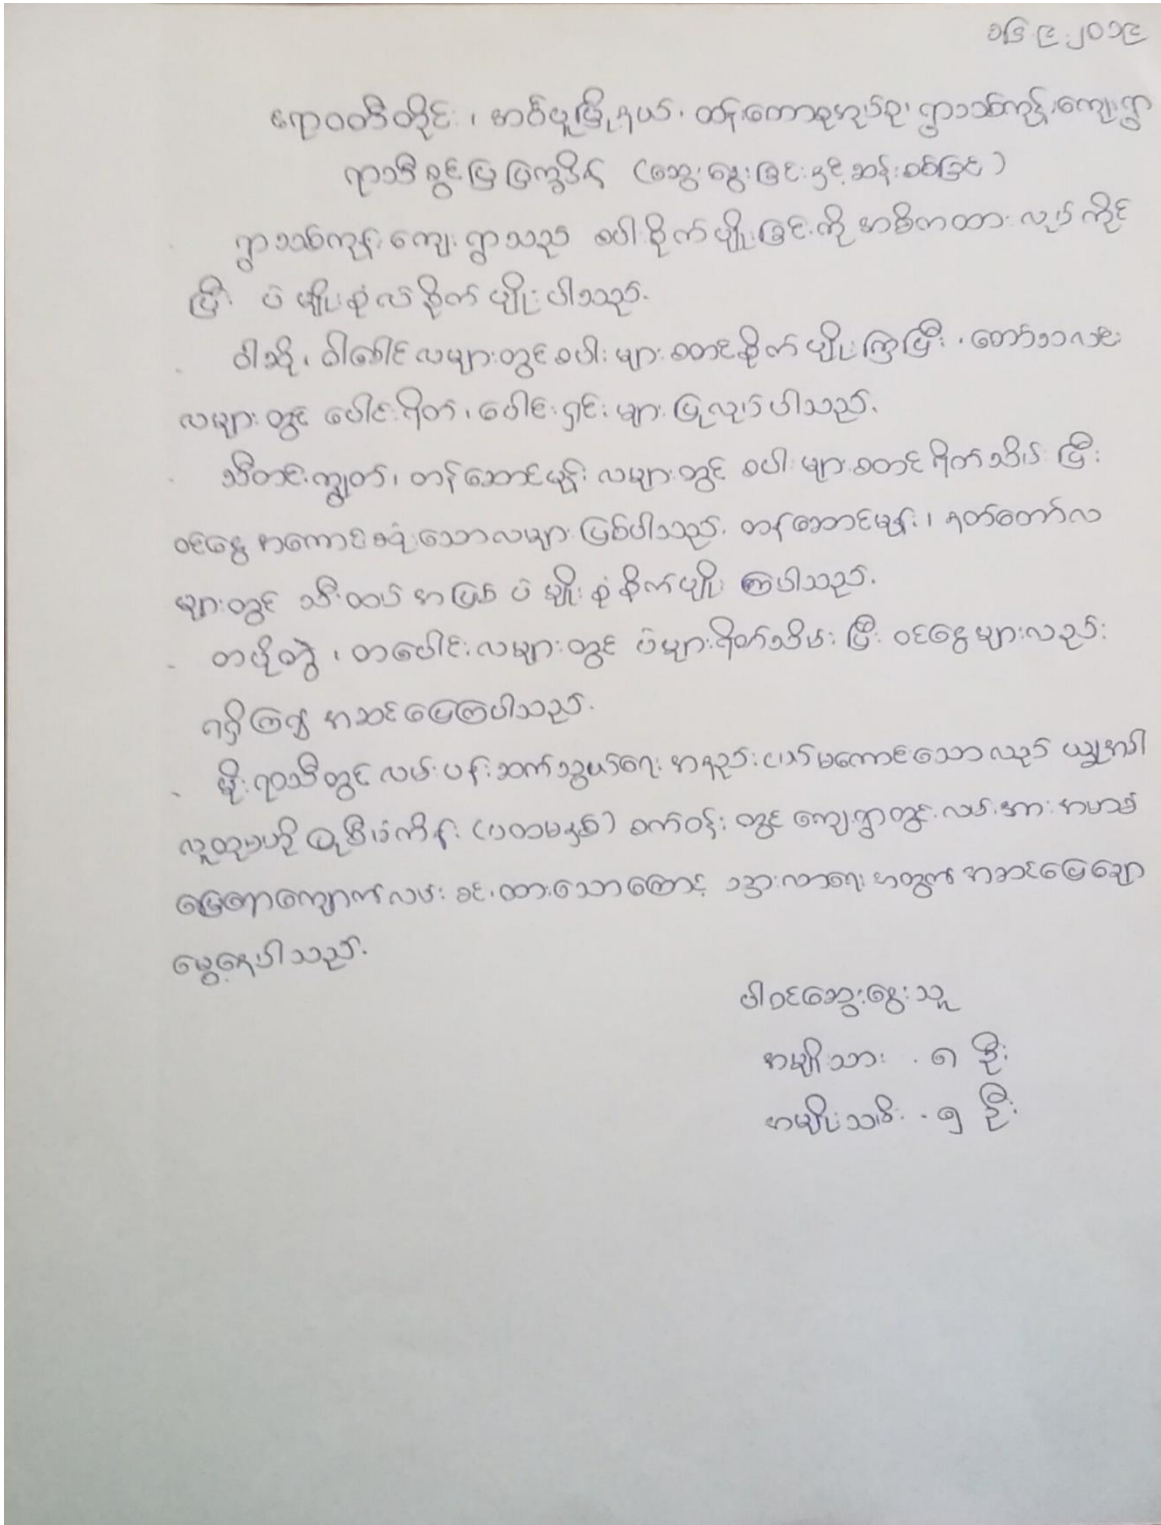 ၁၆.၉.၂၀၁၉
ဧရာဝတီတိုင်း၊ အင်္ဂပူမြို့နယ်၊ ထန်းတောအုပ်စု၊ ရွာသစ်ကုန်းကျေးရွာ
ရာသီခွင်ပြပြက္ခဒိန် (ဆွေးနွေးခြင်းနှင့်ဆန်းစစ်ခြင်း)
ရွာသစ်ကုန်းကျေးရွာသည် စပါးစိုက်ပျိုးခြင်းကို အဓိကထားလုပ်ကိုင်
ပြီး ပဲမျိုးစုံလဲစိုက်ပျိုးပါသည်.
ဝါဆို၊ ဝါခေါင်လများတွင်စပါးများစတင်စိုက်ပျိုးကြပြီး၊ တော်သလင်း
လများတွင် ပေါင်းရိတ်၊ ပေါင်းရှင်းများပြုလုပ်ပါသည်.
သီတင်းကျွတ်၊ တန်ဆောင်မုန်းလများတွင် စပါးများစတင်ရိတ်သိမ်းပြီး
ဝင်ငွေအကောင်းဆုံးသောလများဖြစ်ပါသည်. တန်ဆောင်မုန်း၊ နတ်တော်လ
များတွင် သီးထပ်အဖြစ် ပဲမျိုးစုံစိုက်ပျိုးကြပါသည်.
တပို့တွဲ၊ တပေါင်းလများတွင် ပဲများရိတ်သိမ်းပြီး ဝင်ငွေများလည်း
ရရှိကြ၍ အဆင်ပြေကြပါသည်.
မိုးရာသီတွင်လမ်းပန်းဆက်သွယ်ရေးအနည်းငယ်မကောင်းသော်လည်း ယခုအခါ
လူထုဗဟိုပြုစီမံကိန်း (ပထမနှစ်) စက်ဝန်းတွင် ကျေးရွာတွင်းလမ်းအား အမာခံ
မြေချောကျောက်လမ်းခင်းထားသောကြောင့် သွားလာရေးအတွက်အဆင်ပြေချော
မွေ့နေပါသည်.
ပါဝင်ဆွေးနွေးသူ
အမျိုးသား - ၈ ဦး
အမျိုးသမီး - ၅ ဦး